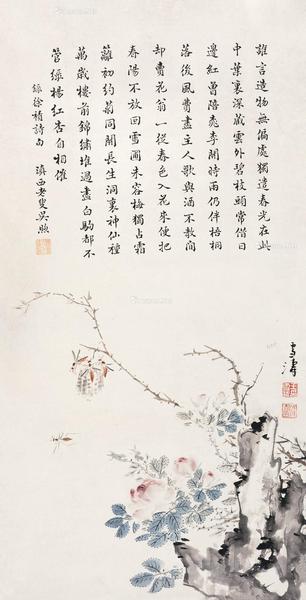 誰言造物無偏處獨遣春光在此
中葉裏深藏雲外碧枝頭常借日
邊紅曾陪桃李開時雨仍伴梧桐
落後風費盡主人歌與酒不教閒
却賣花翁一從春色入花來便把
春陽不放回雪圃未容梅獨占霜
籬初約菊同開長生洞裏神仙種
萬歲樓前錦繡堆過盡白駒都不
管綠楊紅杏自相催
錄徐積詩句 滇西老叟吳
雪濤